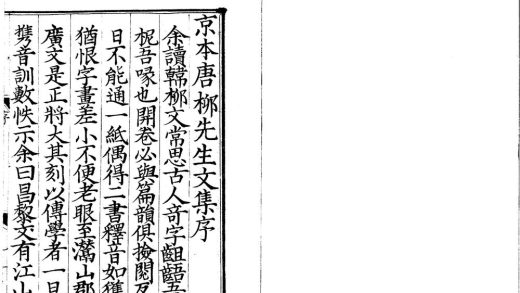 京本唐柳先生文集序
余讀韓柳文常思古人奇字齟齬吾
柅吾喙也開卷必與篇韻俱撿閱反
日不能通一紙偶得二書釋音如獲
猶恨字畫差小不便老眼至灊山郡
廣文是正將大其刻以傳學者一日
攜音訓數帙示余曰昌黎文有江山